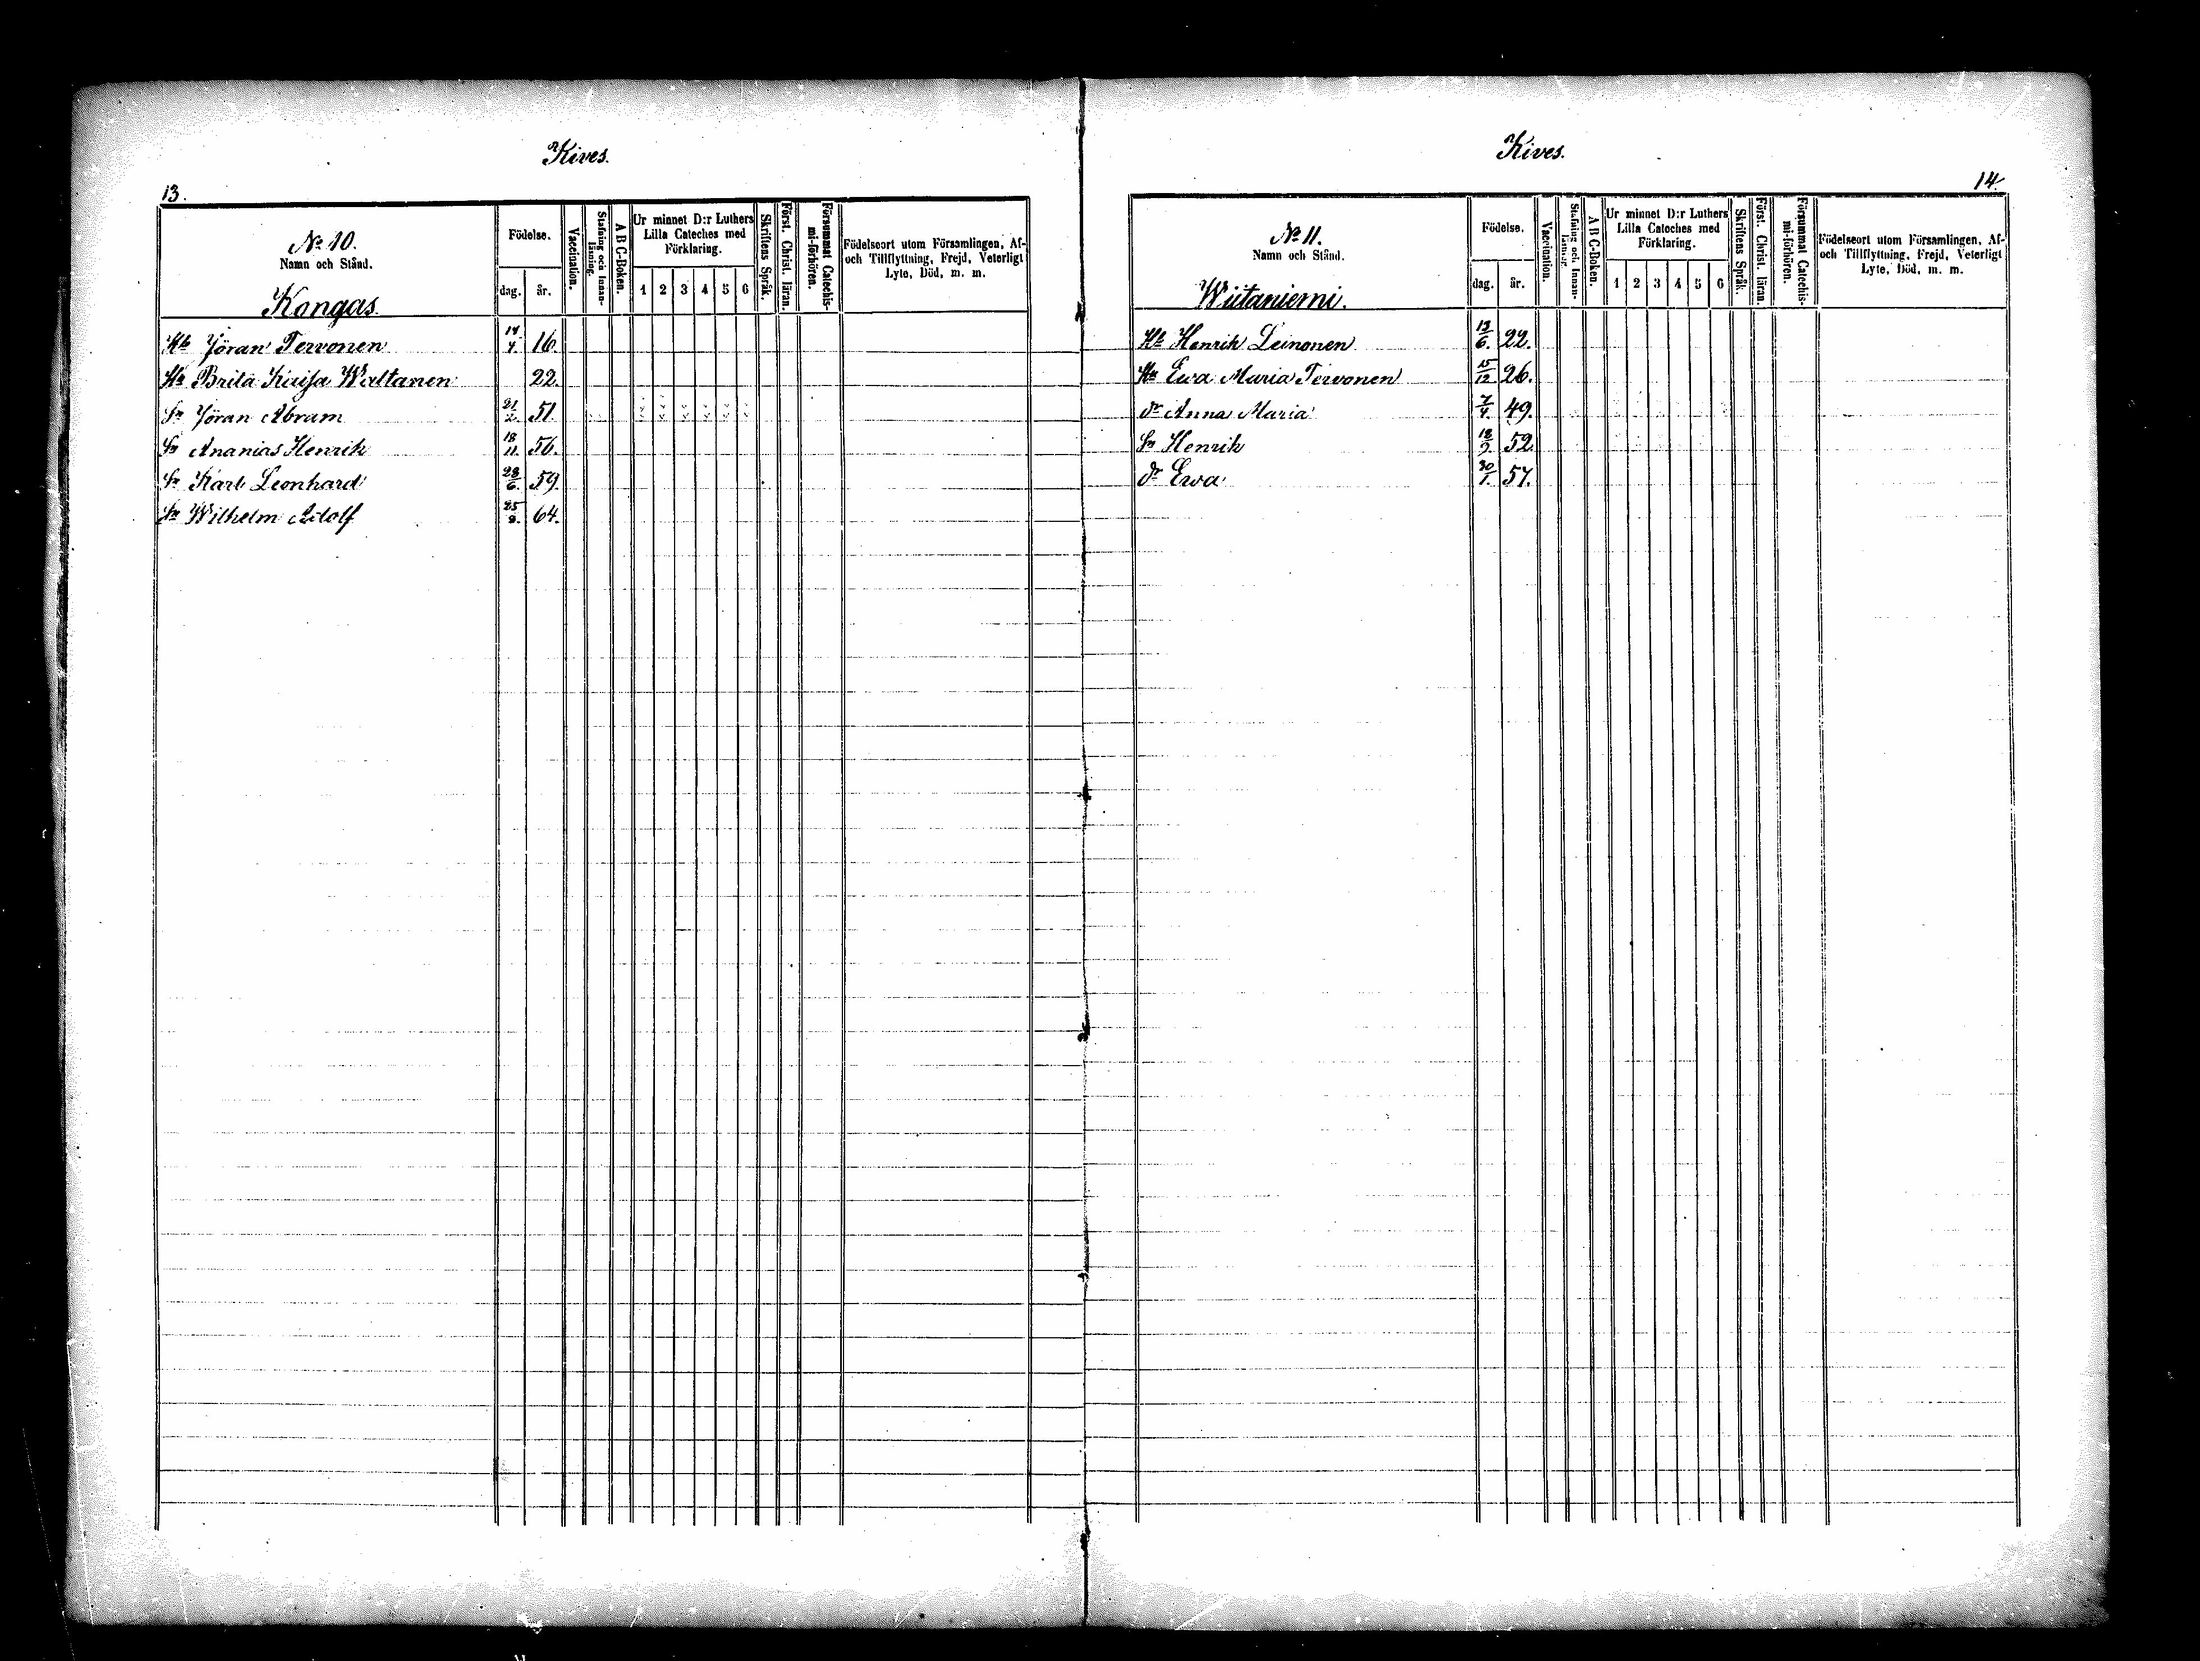 Kives.
13.
No 10.
Namn och Stånd.
Kongas.
Födelse.
dag.
år.
Vaccination.
Stafning och Innan-
läsning.
A B C-Boken.
Ur minnet D:r Luthers
Lilla Cateches med
Förklaring.
1 2 3 4 5 6
Skriftens Språk.
Först. Christ. läran.
Försummat Catechis-
mi-förhören.
Födelseort utom Församlingen, Af-
och Tillflyttning, Frejd, Veterligt
Lyte, Död, m. m.
Hb Jöran Tervonen 14/4. 16.
Hu Brita Kaisa Waltanen 22.
Sn Jöran Abram 21/2. 51.
Sn Ananias Henrik 18/11. 56.
Sn Karl Leonhard 28/6. 59.
Sn Wilhelm Adolf 64.
Kives.
14.
No 11.
Namn och Stånd.
Wiitaniemi.
Födelse.
dag.
år.
Vaccination.
Stafning och Innan-
läsning.
A B C-Boken.
Ur minnet D:r Luthers
Lilla Cateches med
Förklaring.
1 2 3 4 5 6
Skriftens Språk.
Först. Christ. läran.
Försummat Catechis-
mi-förhören.
Födelseort utom Församlingen, Af-
och Tillflyttning, Frejd, Veterligt
Lyte, Död, m. m.
Hb Henrik Leinonen 13/6. 22.
Hu Ewa Maria Tervonen 15/12 26.
dr Anna Maria 7/4. 49.
Sn Henrik 18/9. 52.
dr Ewa 30/7. 57.